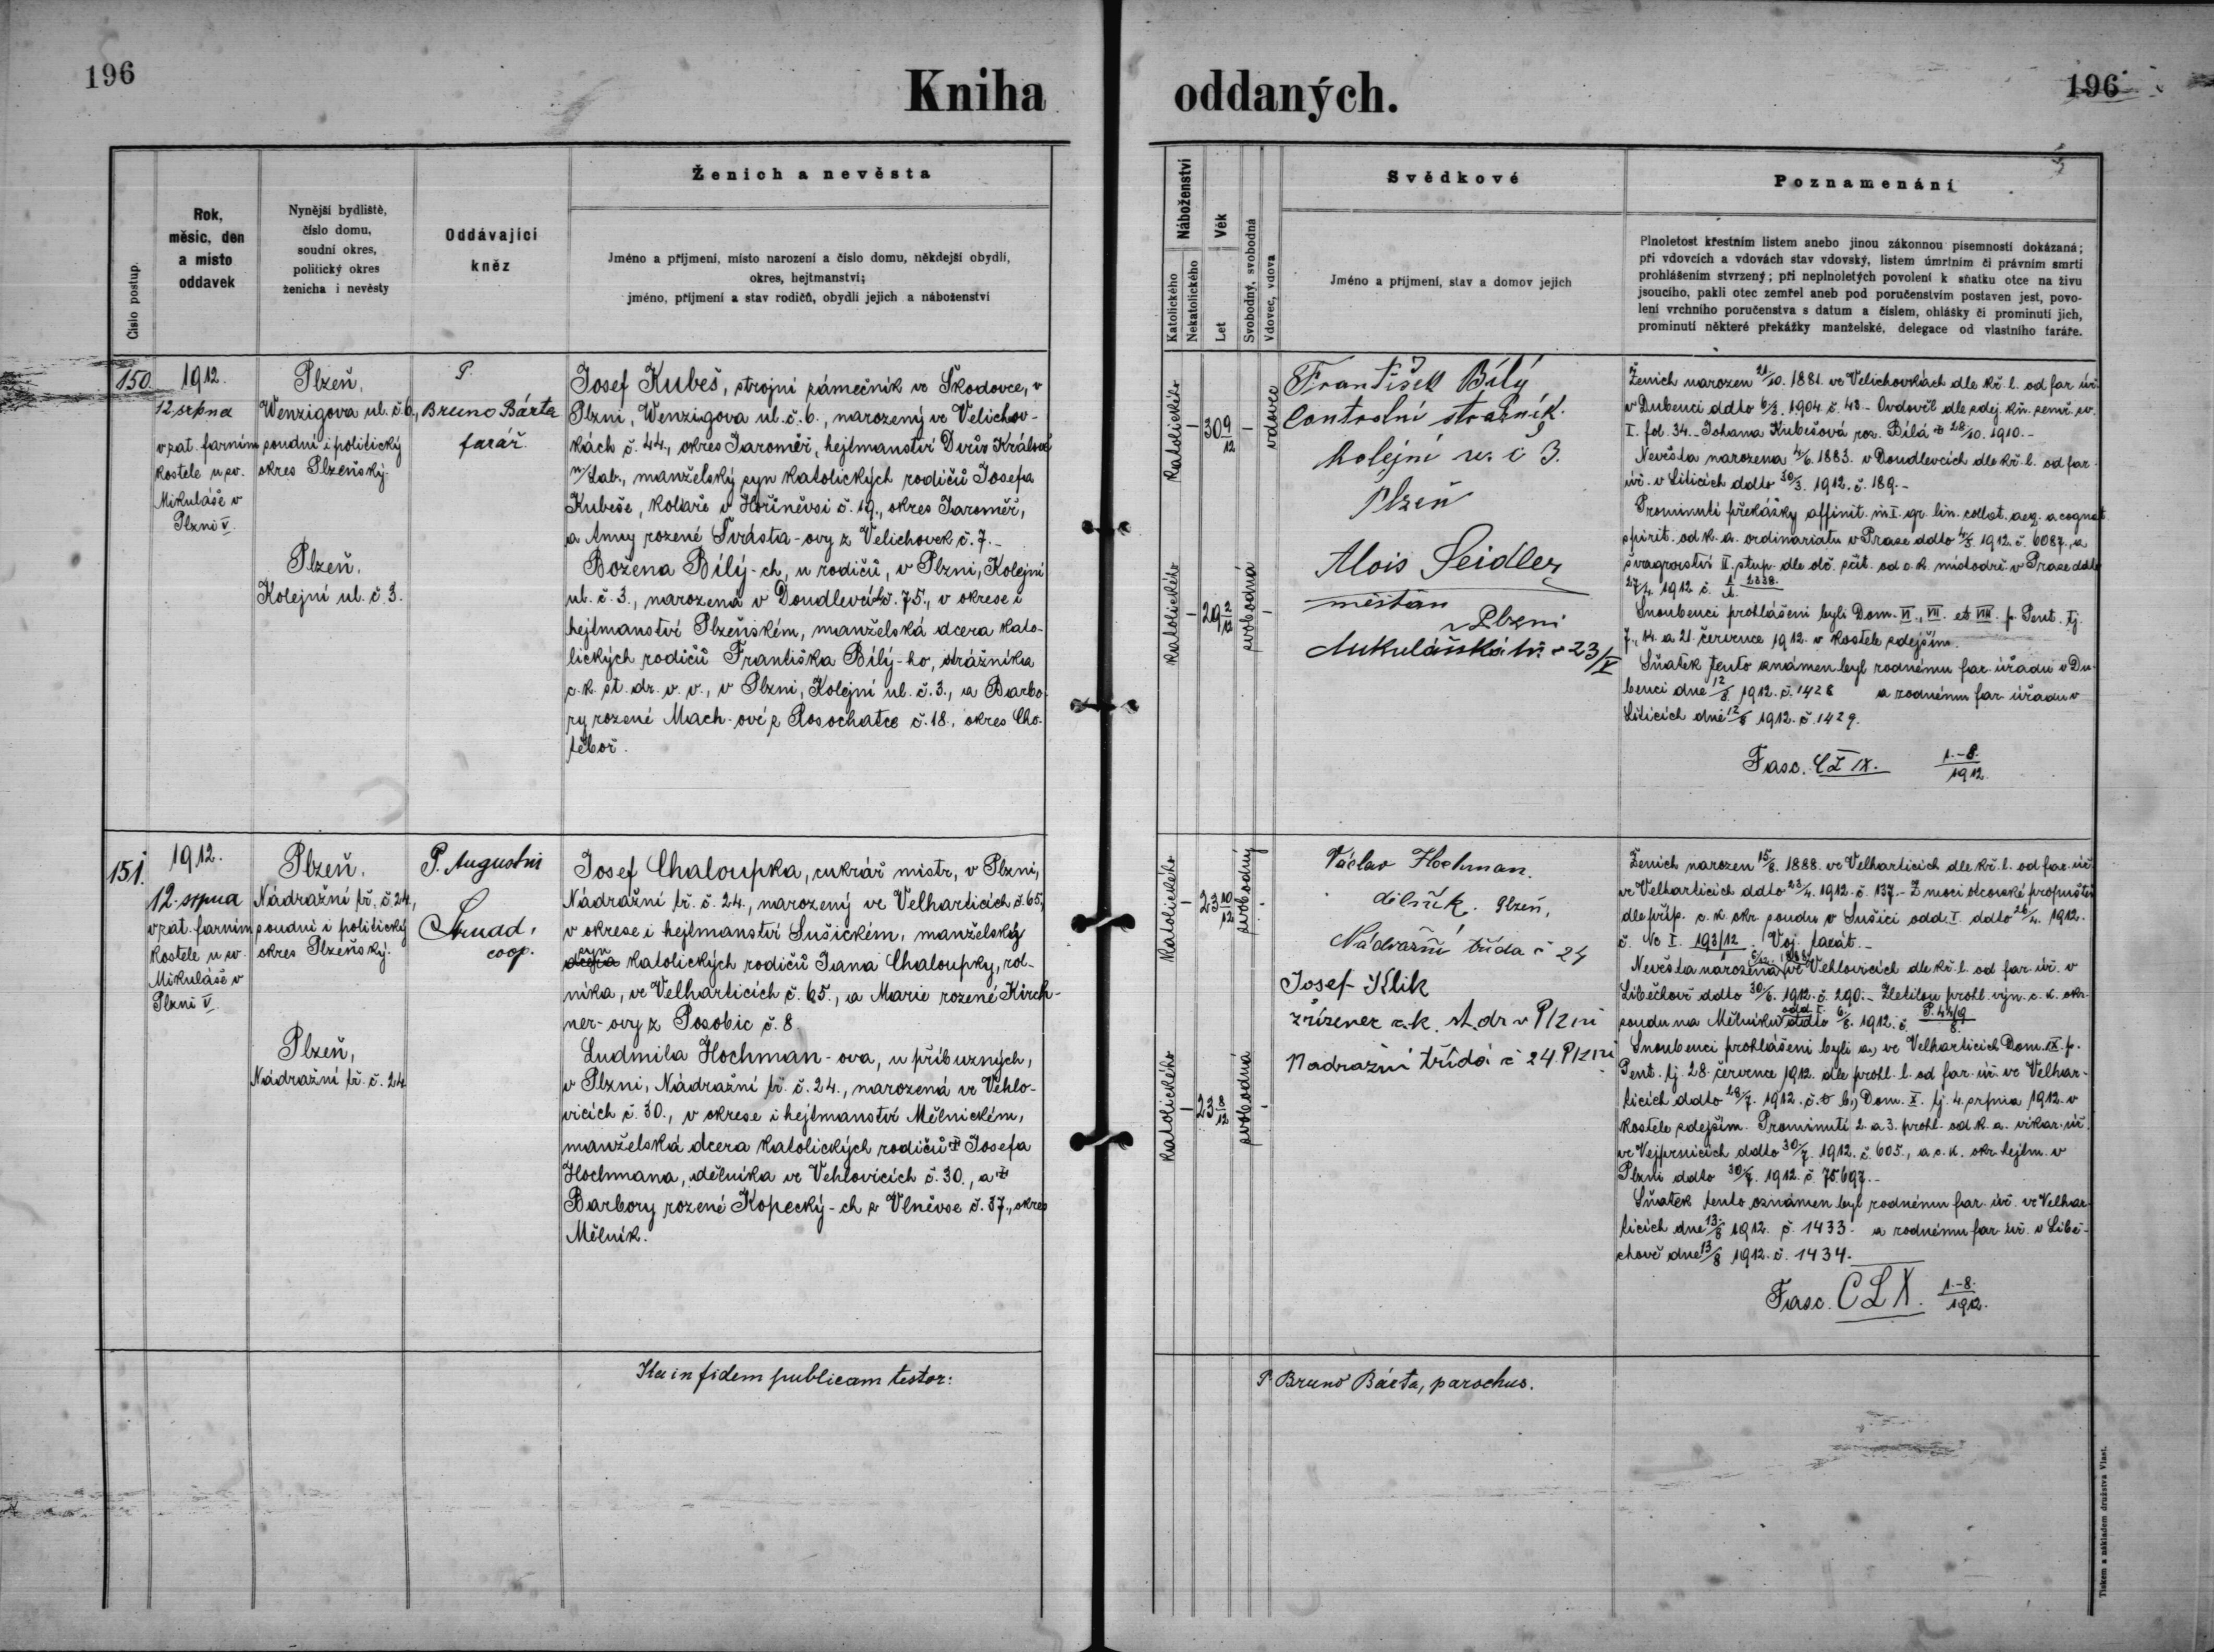 196
Kniha
oddaných.
196
Číslo postup.
Rok,
měsíc, den
a místo
oddavek
Nynější bydliště,
číslo domu,
soudní okres,
politický okres
ženicha i nevěsty
Oddávající
kněz
Ženich a nevěsta
Jméno a příjmení, místo narození a číslo domu, někdejší obydlí,
okres, hejtmanství;
jméno, příjmení a stav rodičů, obydlí jejich a náboženství
Náboženství
Katolického
Nekatolického
Věk
Let
Svobodný, svobodná
Vdovec, vdova
Svědkové
Jméno a příjmení, stav a domov jejich
Poznamenání
Plnoletost křestním listem anebo jinou zákonnou písemností dokázaná;
při vdovcích a vdovách stav vdovský, listem úmrtním či právním smrti
prohlášením stvrzený; při neplnoletých povolení k sňatku otce na živu
jsoucího, pakli otec zemřel aneb pod poručenstvím postaven jest, povo-
lení vrchního poručenstva s datum a číslem, ohlášky či prominutí jich,
prominutí některé překážky manželské, delegace od vlastního faráře.
150.
1912.
12 srpna
v zat. farním
kostele u sv.
Mikuláše v
Plzni V.
Plzeň,
Wenzigova ul. č. 6,
soudní i politický
okres Plzeňský.
Plzeň,
Kolejní ul. č. 3.
P.
Bruno Bárta
farář.
Josef Kubeš, strojní zámečník ve Škodovce, v
Plzni, Wenzigova ul. č. 6., narozený ve Velichov-
kách č. 44., okres Jaroměř, hejtmanství Dvůr Králové
n/Lab., manželský syn katolických rodičů Josefa
Kubeše, koláře v Hořiněvsi č. 19., okres Jaroměř,
a Anny rozené Svrásta-ovy z Velichovek č. 7.-
Božena Bílý-ch, u rodičů, v Plzni, Kolejní
ul. č. 3., narozená v Doudlevcích č. 75., v okrese i
hejtmanství Plzeňském, manželská dcera kato-
lických rodičů Františka Bílý-ho, strážníka
c. k. st. dr. v. v., v Plzni, Kolejní ul. č. 3., a Barbo-
ry rozené Mach-ové z Rosochatce č. 18., okres Cho-
těboř.
Katolického
-
30 9/12
-
vdovec
Katolického
-
29 2/12
svobodná
-
František Bílý
Controlní strážník.
Kolejní u. č 3.
Plzeň
Alois Seidler
měštan
v Plzni
Mukulášská tř. č 23/V
Ženich narozen 21/10. 1881. ve Velichovkách dle kř. l. od far. úř.
v Dubenci ddto 6/3. 1904. č. 43.- Ovdověl dle zdej. kn. zemř. sv.
I. fol. 34.- Johana Kubešová roz. Bílá † 28/10. 1910.-
Nevěsta narozena 4/6. 1883. v Doudlevcích dle kř. l. od far.
úř. v Liticích ddto 30/3. 1912. č. 189.-
Prominutí překážky affinit. in I. gr. lin. collat. aeq. a cognat.
spirit. od k. a. ordinariatu v Praze ddto 4/5. 1912. č. 6087., a
švagrovství II. stup. dle obč. počít. od c. k. místodrž. v Praze ddto
27/4. 1912. č.
Snoubenci prohlášeni byli Dom. VI., VII. et VIII. p. Pent. tj.
7., 14. a 21. července 1912. v kostele zdejším.
Sňatek tento oznámen byl rodnému far. úřadu v Du-
benci dne 12/8 1912. č. 1428 a rodnému far. úřadu v
Liticích dne 12/8 1912. č. 1429.
Fasc. CLIX. 1.-8./1912.
151.
1912.
12. srpna
v zat. farním
kostele u sv.
Mikuláše v
Plzni V.
Plzeň,
Nádražní tř. č. 24,
soudní i politický
okres Plzeňský.
Plzeň,
Nádražní tř. č. 24
P. Augustin
Strnad,
coop.
Josef Chaloupka, cukrář mistr, v Plzni,
Nádražní tř. č. 24., narozený ve Velharticích č. 65,
v okrese i hejtmanství Sušickém, manželský
syn katolických rodičů Jana Chaloupky, rol-
níka, ve Velharticích č. 65., a Marie rozené Kirch-
ner-ovy z Posobic č. 8.
Ludmila Hochman-ova, u příbuzných,
v Plzni, Nádražní tř. č. 24., narozená ve Vehlo-
vicích č. 30., v okrese i hejtmanství Mělnickém,
manželská dcera katolických rodičů † Josefa
Hochmana, dělníka ve Vehlovicích č. 30., a †
Barbory rozené Kopecký-ch z Vlněvse č. 37., okres
Mělník.
Katolického
-
23 10/12
svobodný
-
Katolického
-
23 8/12
svobodná
-
Václav Hochman.
dělník. Plzeň,
Nádražní třída č 24
Josef Klik
zřízenec c. k. st. dr v Plzni
Nadražní třída č 24. Plzni
Ženich narozen 15/8. 1888. ve Velharticích dle kř. l. od far. úř.
ve Velharticích ddto 23/4. 1912. č. 137.- Z moci otcovské propuštěn
dle příp. c. k. okr. soudu v Sušici odd. I. ddto 26/4. 1912.
č. Nc I. 193/12. Voj. taxát.-
Nevěsta narozena ve Vehlovicích dle kř. l. od far. úř. v
Liběchově ddto 30/6. 1912. č. 290.- Zletilou prohl. výn. c. k. okr.
soudu na Mělníku odd. I. ddto 6/8. 1912. č. P. 44/9/8.
Snoubenci prohlášeni byli a., ve Velharticích Dom. IX. p.
Pent. tj. 28. července 1912. dle prohl. l. od far. úř. ve Velhar-
ticích ddto 28/7. 1912. č. b., Dom. X. tj. 4. srpna 1912. v
kostele zdejším. Prominutí 2. a 3. prohl. od k. a. vikar. úř.
ve Vejprnicích ddto 30/7. 1912. č. 605., a c. k. okr. hejtm. v
Plzni ddto 30/7. 1912. č. 75.697.-
Sňatek tento oznámen byl rodnému far. úř. ve Velhar-
ticích dne 13/8 1912. č. 1433. a rodnému far. úř. v Libě-
chově dne 13/8 1912. č. 1434.
Fasc. CLX. 1.-8./1912.
Ita in fidem publicam testor:
P. Bruno Bárta, parochus.
Tiskem a nákladem družstva Vlast.